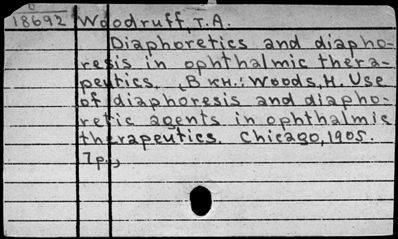 0
18692 Woodruff, T.A.
Diaphoretics and diapho-
resis in ophthalmic thera-
peutics. (В кн.: Woods, H. Use
of diaphoresis and diapho-
retic agents in ophthalmic
therapeutics. Chicago, 1905.
7p.,